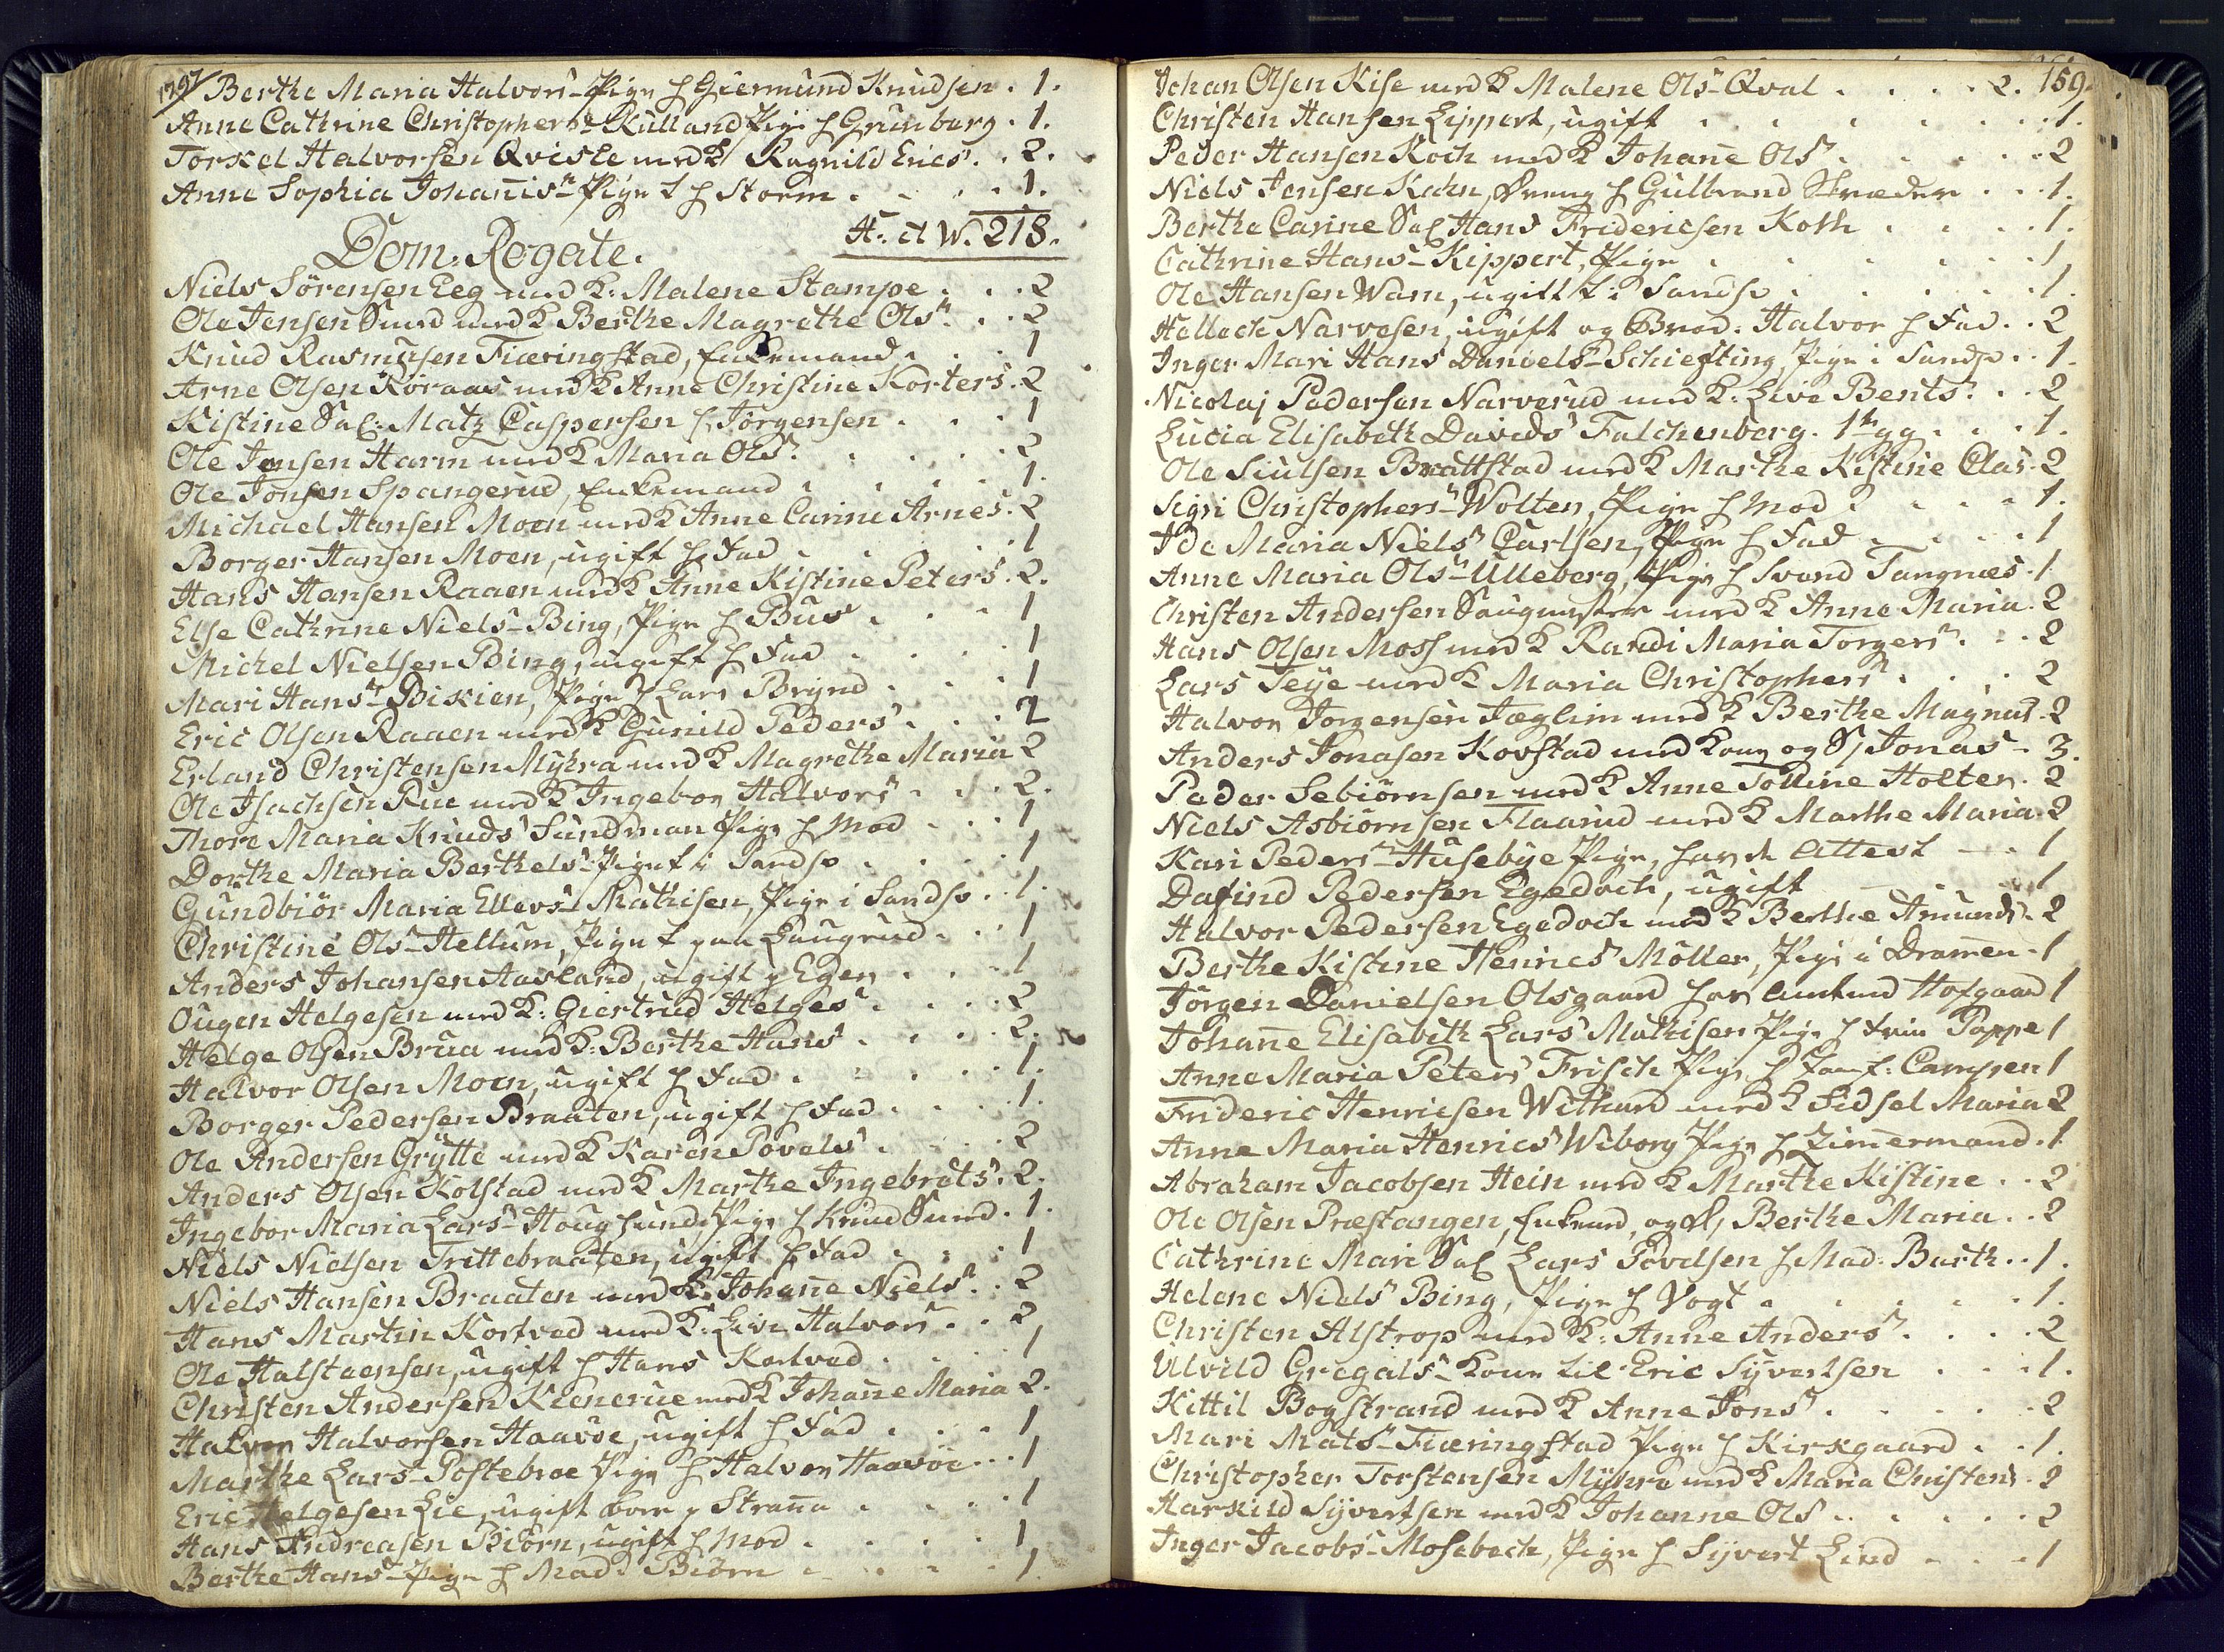 1797 Berthe Maria Halvorsn Pige h Giermund Knudsen . 1.
Anne Cathrine Christophersn Kulland Pige h Grünburg . 1.
Torkel Halvorsen Qvisle med K Ragnild Erics . . 2.
Anne Sophia Johanisn Pige t h Storm . . . . 1.
H. et W. 218.
Dom: Rogate.
Niels Sörensen Eeg med K: Malene Stampe . . . 2
Ole Jensen Smed med K Berthe Magrethe Olsn . . 2
Knud Rasmusen Fiæringstad, Enkemand . . . 1
Arne Olsen Köraas med K Anne Christine Korters . 2
Kistine Sal: Matz Caspersen h Jörgensen . . . 1
Ole Jensen Harm med K Maria Olsn . . . . 2
Ole Jonsen Spangerud, Enkemand . . . . 1.
Michael Hansen Moen med K Anne Carine Arnes . 2
Borger Hansen Moen, ugift h Fad . . . . 1
Hans Hansen Raaen med K Anne Kistine Peters . 2.
Else Cathrine Nielsn Bing, Pige h Bus . . . 1
Michel Nielsen Bing, ugift h Fad . . . . 1
Mari Hansn Biskien, Pige h Lars Brynd . . . 1
Eric Olsen Raaen med K Gunild Peders . . . 2
Erland Christensen Myhra med K Magrethe Maria 2
Ole Isachsen Rue med K Ingebor Halvors . . . 2.
Thore Maria Knuds Sundman Pige h Mod . . . 1
Dorthe Maria Berthelsn Pige t i Sandsv . . . 1
Gundbiör Maria Ellevsn Mathisen, Pige i Sandsv . . 1.
Christine Olsn Hellum, Pige t paa Haugrud . . . 1
Anders Johansen Aasland, ugift p Egen . . . 1
Ougen Helgesen med K: Giertrud Helges . . . . 2
Helge Olsen Brua med K: Berthe Hans . . . . 2.
Halvor Olsen Moen, ugift h Fad . . . . . 1.
Borger Pedersen Braaten, ugift h Fad . . . . 1.
Ole Andersen Grytte med K Karen Povels . . . 2
Anders Olsen Kolstad med K Marthe Ingebrets . 2.
Ingebor Maria Larsn Hougsund, Pige h Knud Smed . 1.
Niels Nielsen Trittebraaten, ugift h Fad . . . 1
Niels Hansen Braaten med K. Johane Nielsn . . 2
Hans Martin Kortved med K: Live Halvors . . 2
Ole Halstensen, ugift h Hans Kortved . . . 1
Christen Andersen Kienerue med K Johane Maria 2.
Halvor Halvorsen Haavöe, ugift h Fad . . . 1
Marthe Larsn Postebroe Pige h Halvor Haavöe . . . 1
Eric Helgesen Lie, ugift boer p Strana . . . . 1
Hans Andreasen Biörn, ugift h Mod . . . . 1
Berthe Hansn Pige h Mad: Biörn . . . . 1.
159.
Johan Olsen Kise med K Malene Olsn Qval . . . . 2.
Christen Hansen Lippert, ugift . . . . . . . 1.
Peder Hansen Koch med K Johane Olsn . . . . . 2
Niels Jensen Kahn, Dreng h Gulbrand Skræder . . . 1.
Berthe Carine Sal Hans Fridericsen Koth . . . . 1.
Cathrine Hansn Kippert, Pige . . . . . . 1
Ole Hansen Wam, ugift t i Sandsv . . . . . 1.
Hellech Narvesen, ugift og Brod: Halvor h Fad . . 2
Inger Mari Hans Danielsn Schiefting, Pige i Sandsv . . 1.
Nicolaj Pedersen Narverud med K: Live Bents . . 2
Lucia Elisabeth Davids Falchenberg. 1te gg . . . 1.
Ole Siulsen Brattstad med K Marthe Kistine Clas . 2
Sigri Christophersn Wolten, Pige h Mod . . . . 1.
Ide Maria Nielsn Carlsen, Pige h Fad . . . . 1
Anne Maria Olsn Ulleberg, Pige h Svend Tangnæs . 1
Christen Andersen Saugmester med K Anne Maria . 2
Hans Olsen Moss med K Randi Maria Torgers . . . 2
Lars Teye med K Maria Christophers . . . . 2
Halvor Jorgensen Fæglim med K Berthe Magnus . 2
Anders Jonasen Kovstad med Kone og S, Jonas . 3.
Peder Sebiörnsen med K Anne Tolline Holter . 2
Niels Asbiörnsen Flaarud med K Marthe Maria . 2
Kari Pedersn Husebye Pige, har Attest . . 1
Dafind Pedersen Egedoch, ugift . . . . 1
Halvor Pedersen Egedoch med K Berthe Amunds . 2
Berthe Kistine Henrics Möller, Pige i Dramen . 1
Jörgen Danielsen Olsgaard hos Amtmd Hofgaard 1
Johane Elisabeth Lars Mathisen Pige h Frue Poppe 1
Anne Maria Peters Frisch Pige h Jomf: Campen 1
Frideric Henricsen Withard med K Sidsel Maria 2
Anne Maria Henrics Wiborg Pige h Zimermand . 1
Abraham Jacobsen Hein med K Marthe Kistine . . 2
Ole Olsen Præstangen, Enkemd, og D, Berthe Maria . . 2
Cathrine Mari Sal Lars Povelsen h Mad: Barth . . 1.
Helene Nielsn Bing, Pige h Vogt . . . . . . 1.
Christen Alstrop med K: Anne Andersn . . . . 2
Ulvild Gregalsn Kone til Eric Syvertsen . . . 1.
Kittil Bogstrand med K Anne Jonsn . . . . . 2
Mari Matsn Fiæringstad Pige h Kirkgaard . . . 1.
Christopher Torstensen Myhre med K Maria Christens . 2
Harkild Syvertsen med K Johanne Ols . . . . . . 2
Inger Jacobsn Mosebech, Pige h Syvert Lind . . . 1